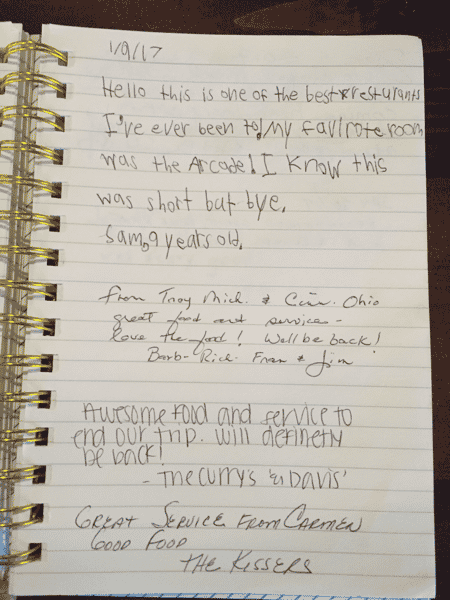 1/9/17
Hello this is one of the best resturants
I've ever been to! My favirote room
was the Arcade! I know this
was short but bye.
Sam, 9 years old.
from Troy Mich. & Cin. Ohio
great food and service -
love the food! Well be back!
Barb - Rick - Fran & Jim
Awesome food and service to
end our trip. Will definetly
be back!
- The Curry's & Davis'
GREAT SERVICE FROM CARMEN
GOOD FOOD
THE KISSERS